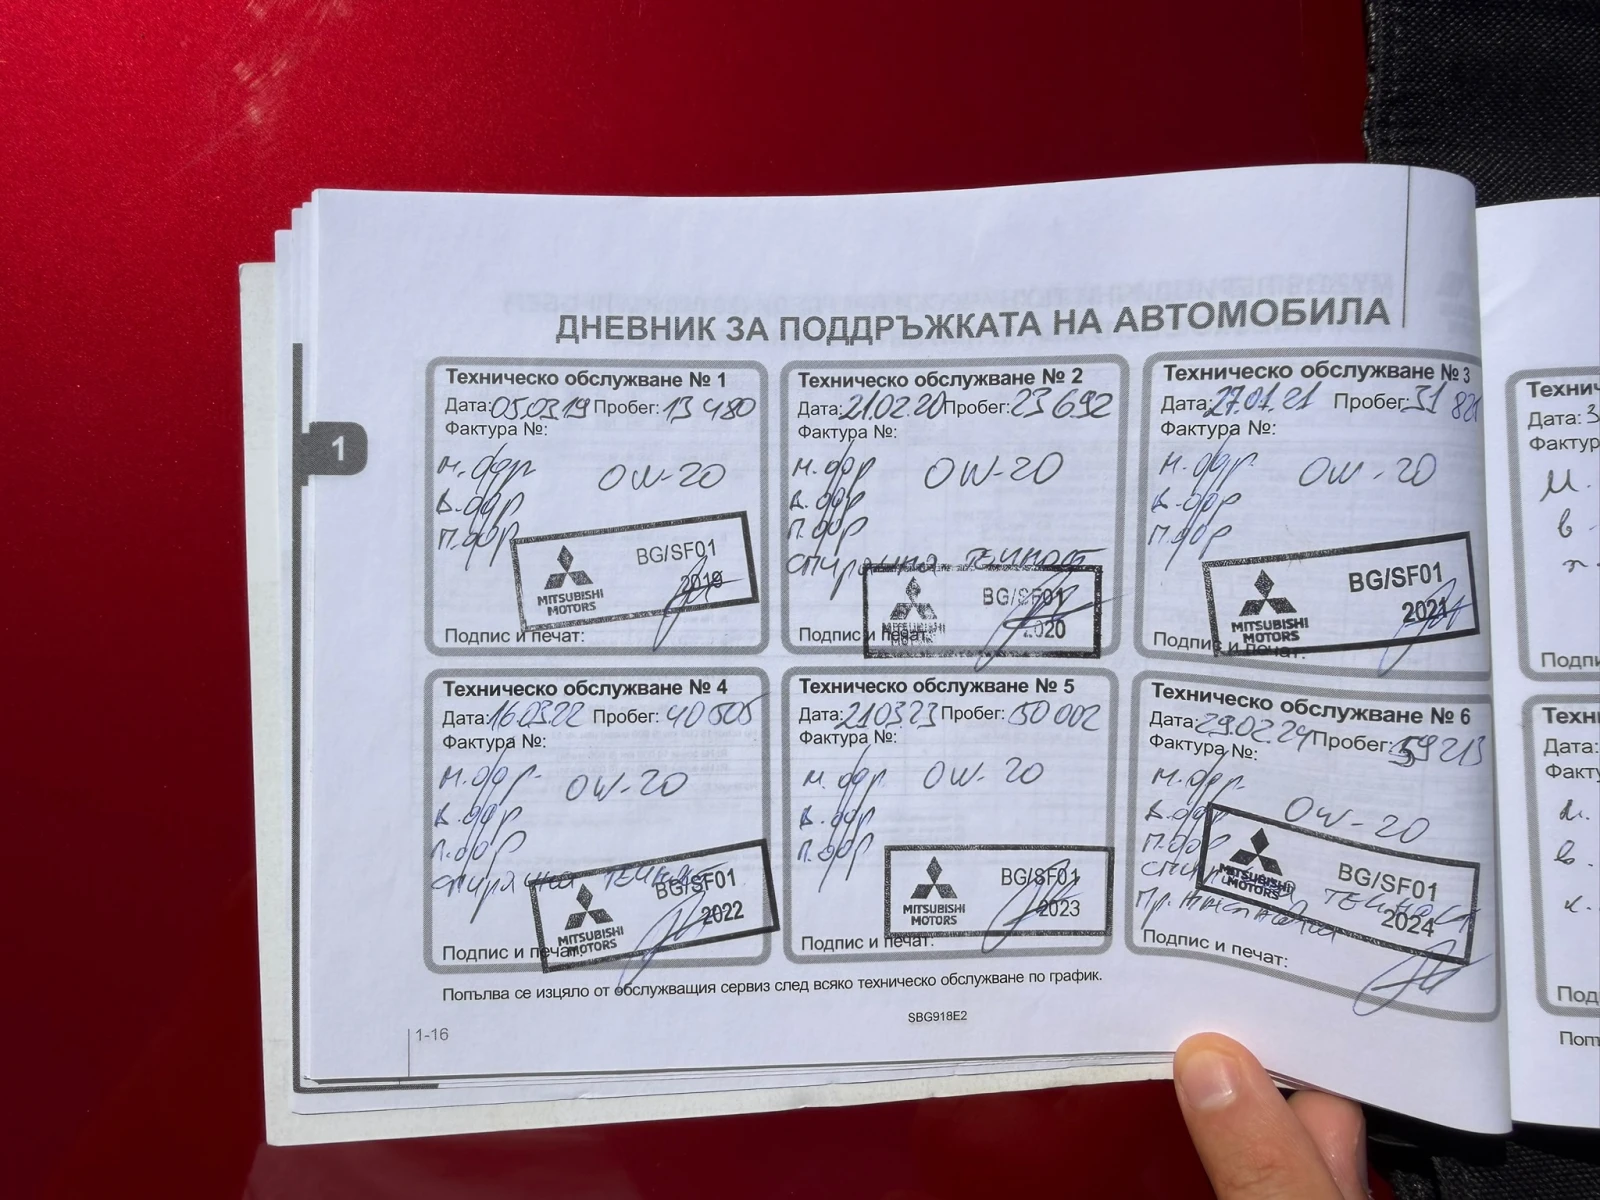 ДНЕВНИК ЗА ПОДДРЪЖКАТА НА АВТОМОБИЛА
1
Техническо обслужване № 1
Дата: 05.03.19 Пробег: 13 480
Фактура №:
м. фдр 0W-20
в. фдр
п. фдр
BG/SF01
2019
MITSUBISHI
MOTORS
Подпис и печат:
Техническо обслужване № 2
Дата: 21.02.20 Пробег: 23 692
Фактура №:
м. фдр 0W-20
в. фдр
п. фдр
спирачна течност
BG/SF01
2020
MITSUBISHI
MOTORS
Подпис и печат:
Техническо обслужване № 3
Дата: 27.01.21 Пробег: 31
Фактура №:
м. фдр. 0W-20
в. фдр
п. фдр
BG/SF01
2021
MITSUBISHI
MOTORS
Подпис и печат:
Техническо обслужване № 4
Дата: 16.03.22 Пробег: 40 505
Фактура №:
м. фдр. 0W-20
в. фдр
п. фдр
спирачна течност
BG/SF01
2022
MITSUBISHI
MOTORS
Подпис и печат:
Техническо обслужване № 5
Дата: 21.03.23 Пробег: 50 002
Фактура №:
м. фдр 0W-20
в. фдр
п. фдр
BG/SF01
2023
MITSUBISHI
MOTORS
Подпис и печат:
Техническо обслужване № 6
Дата: 29.02.24 Пробег: 59 213
Фактура №:
м. фдр.
в. фдр 0W-20
п. фдр
BG/SF01
2024
MITSUBISHI
MOTORS
течност
Подпис и печат:
Попълва се изцяло от обслужващия сервиз след всяко техническо обслужване по график.
SBG918E2
1-16
Дата: 3
Дата: